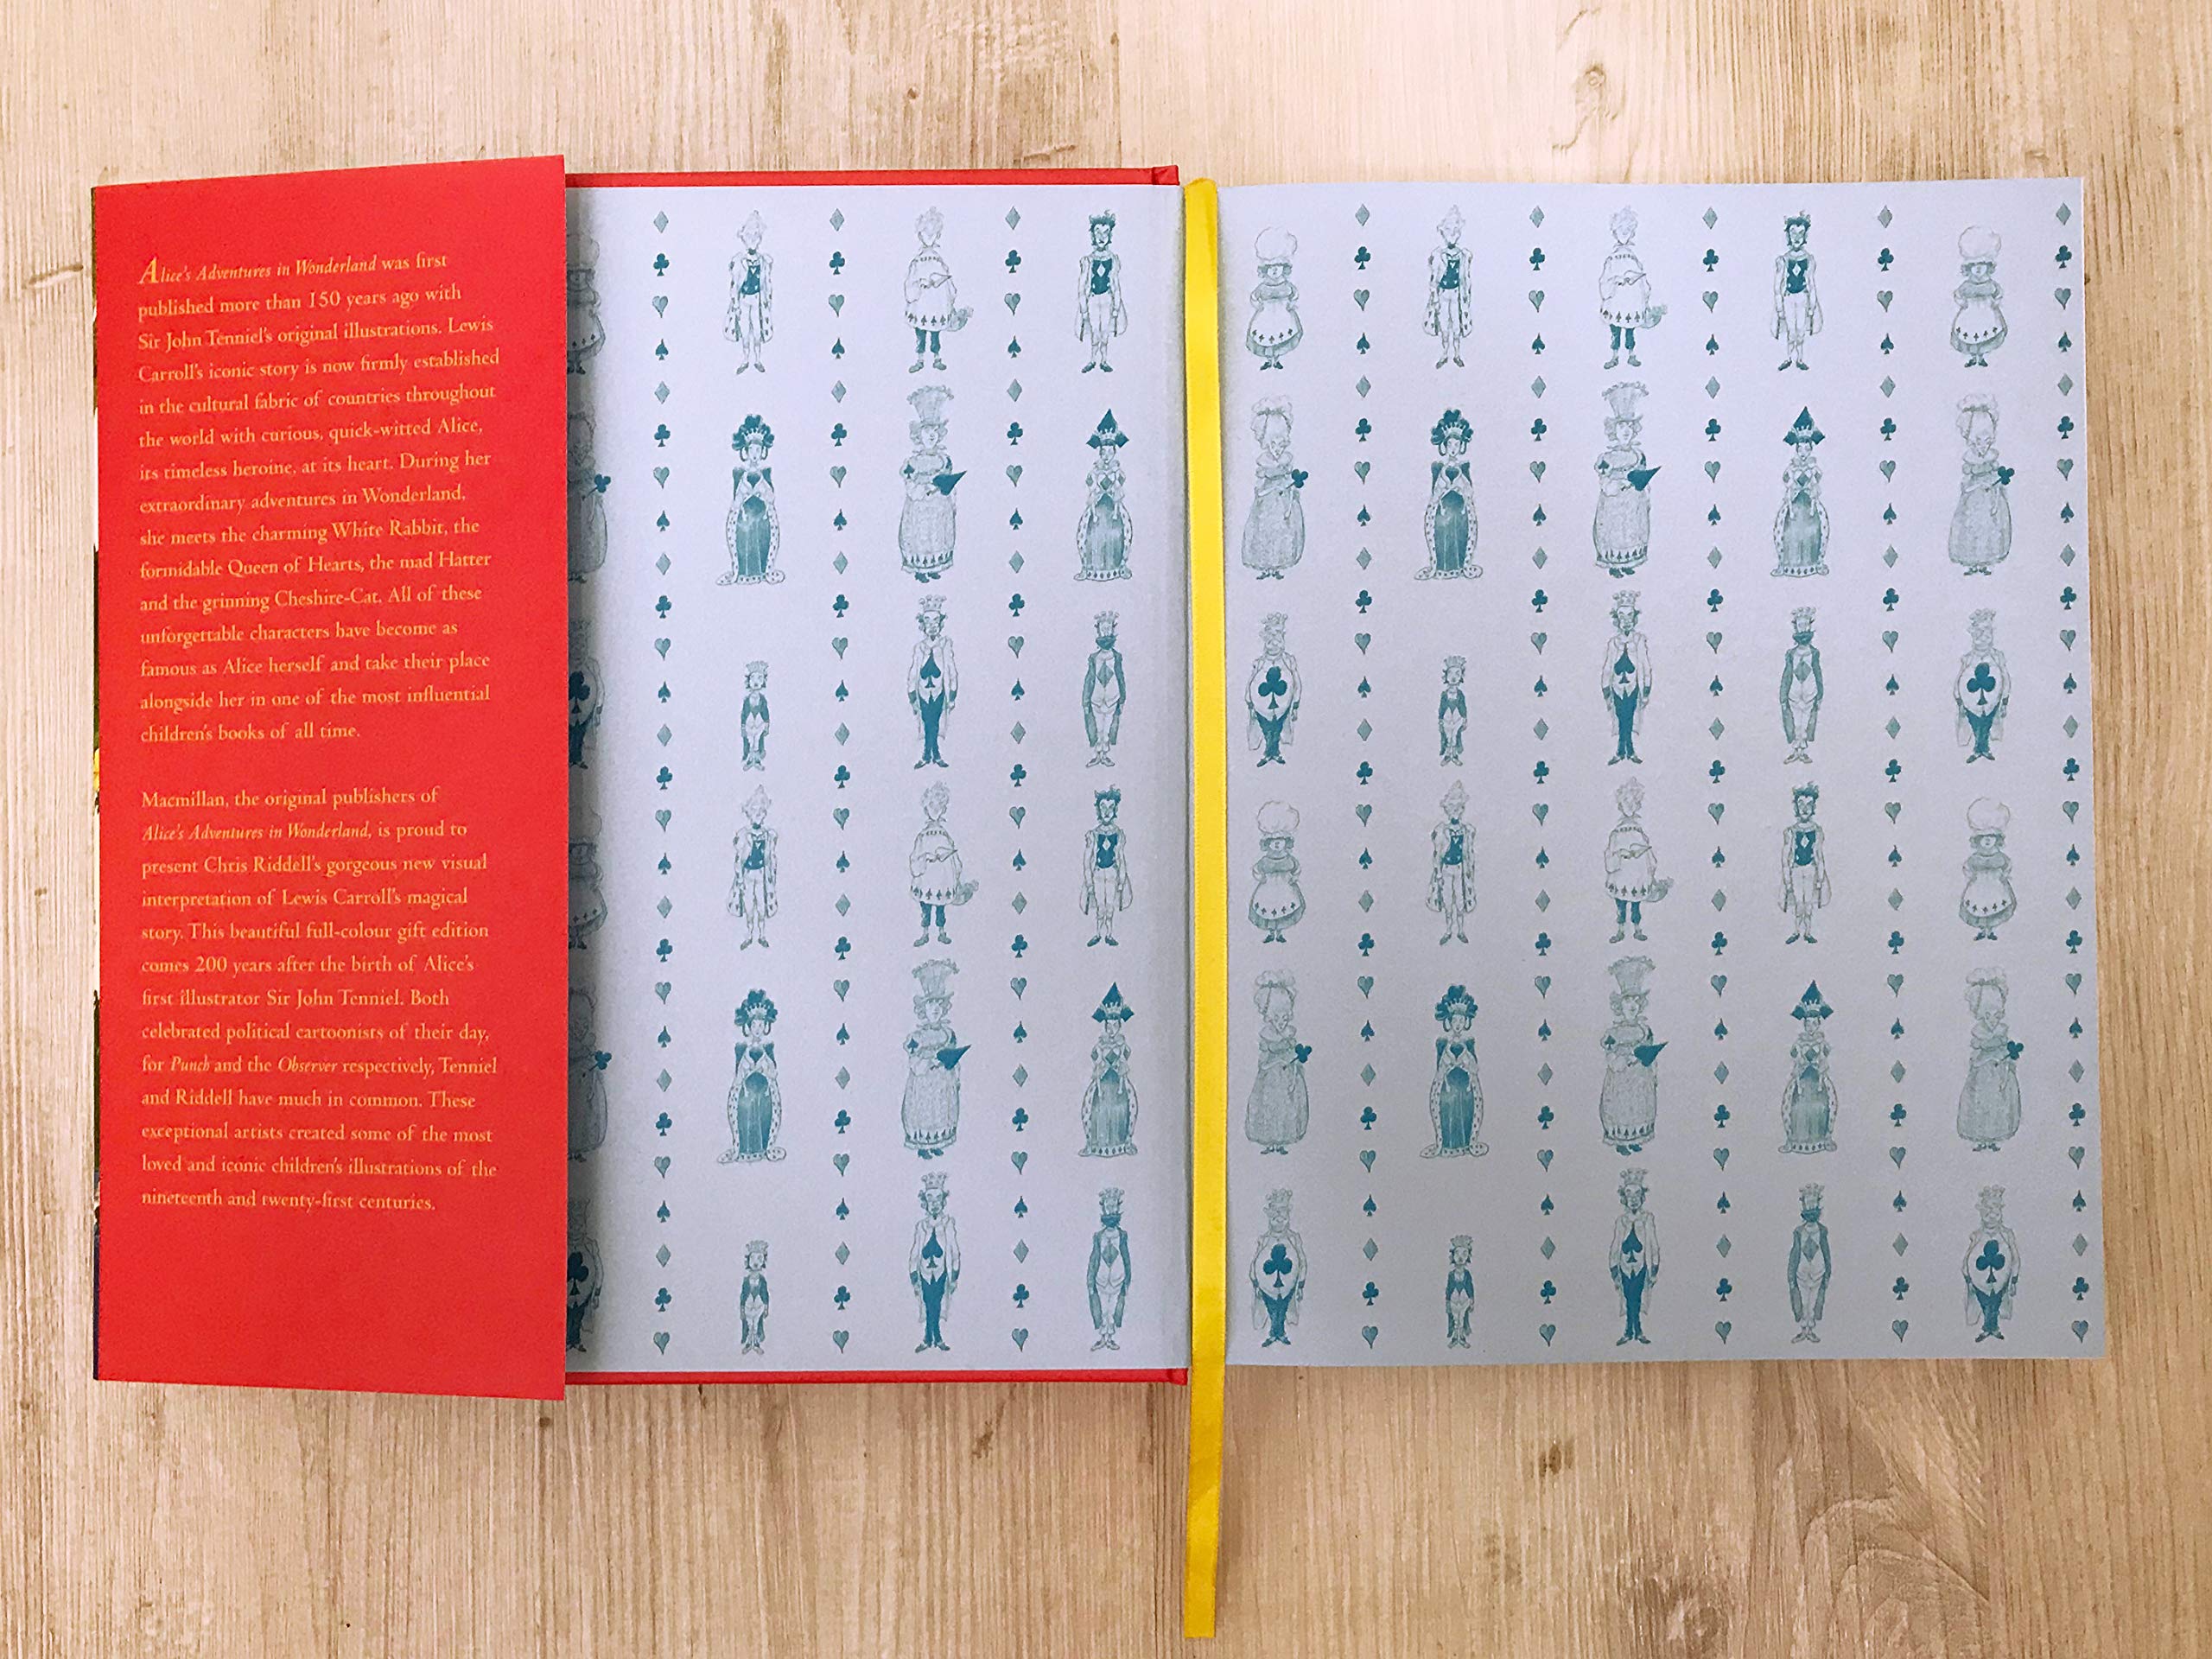 Alice's Adventures in Wonderland was first
published more than 150 years ago with
Sir John Tenniel's original illustrations. Lewis
Carroll's iconic story is now firmly established
in the cultural fabric of countries throughout
the world with curious, quick-witted Alice,
its timeless heroine, at its heart. During her
extraordinary adventures in Wonderland,
she meets the charming White Rabbit, the
formidable Queen of Hearts, the mad Hatter
and the grinning Cheshire-Cat. All of these
unforgettable characters have become as
famous as Alice herself and take their place
alongside her in one of the most influential
children's books of all time.
Macmillan, the original publishers of
Alice's Adventures in Wonderland, is proud to
present Chris Riddell's gorgeous new visual
interpretation of Lewis Carroll's magical
story. This beautiful full-colour gift edition
comes 200 years after the birth of Alice's
first illustrator Sir John Tenniel. Both
celebrated political cartoonists of their day,
for Punch and the Observer respectively, Tenniel
and Riddell have much in common. These
exceptional artists created some of the most
loved and iconic children's illustrations of the
nineteenth and twenty-first centuries.